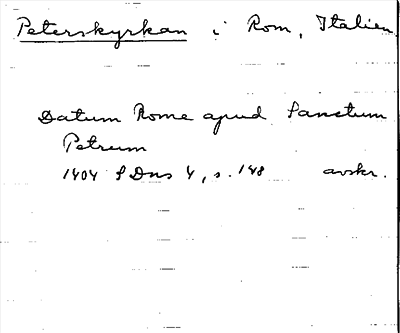 Peterskyrkan i Rom, Italien.
Datum Rome apud Sanctum
Petrum
1404 SDns 4, s. 148 avskr.